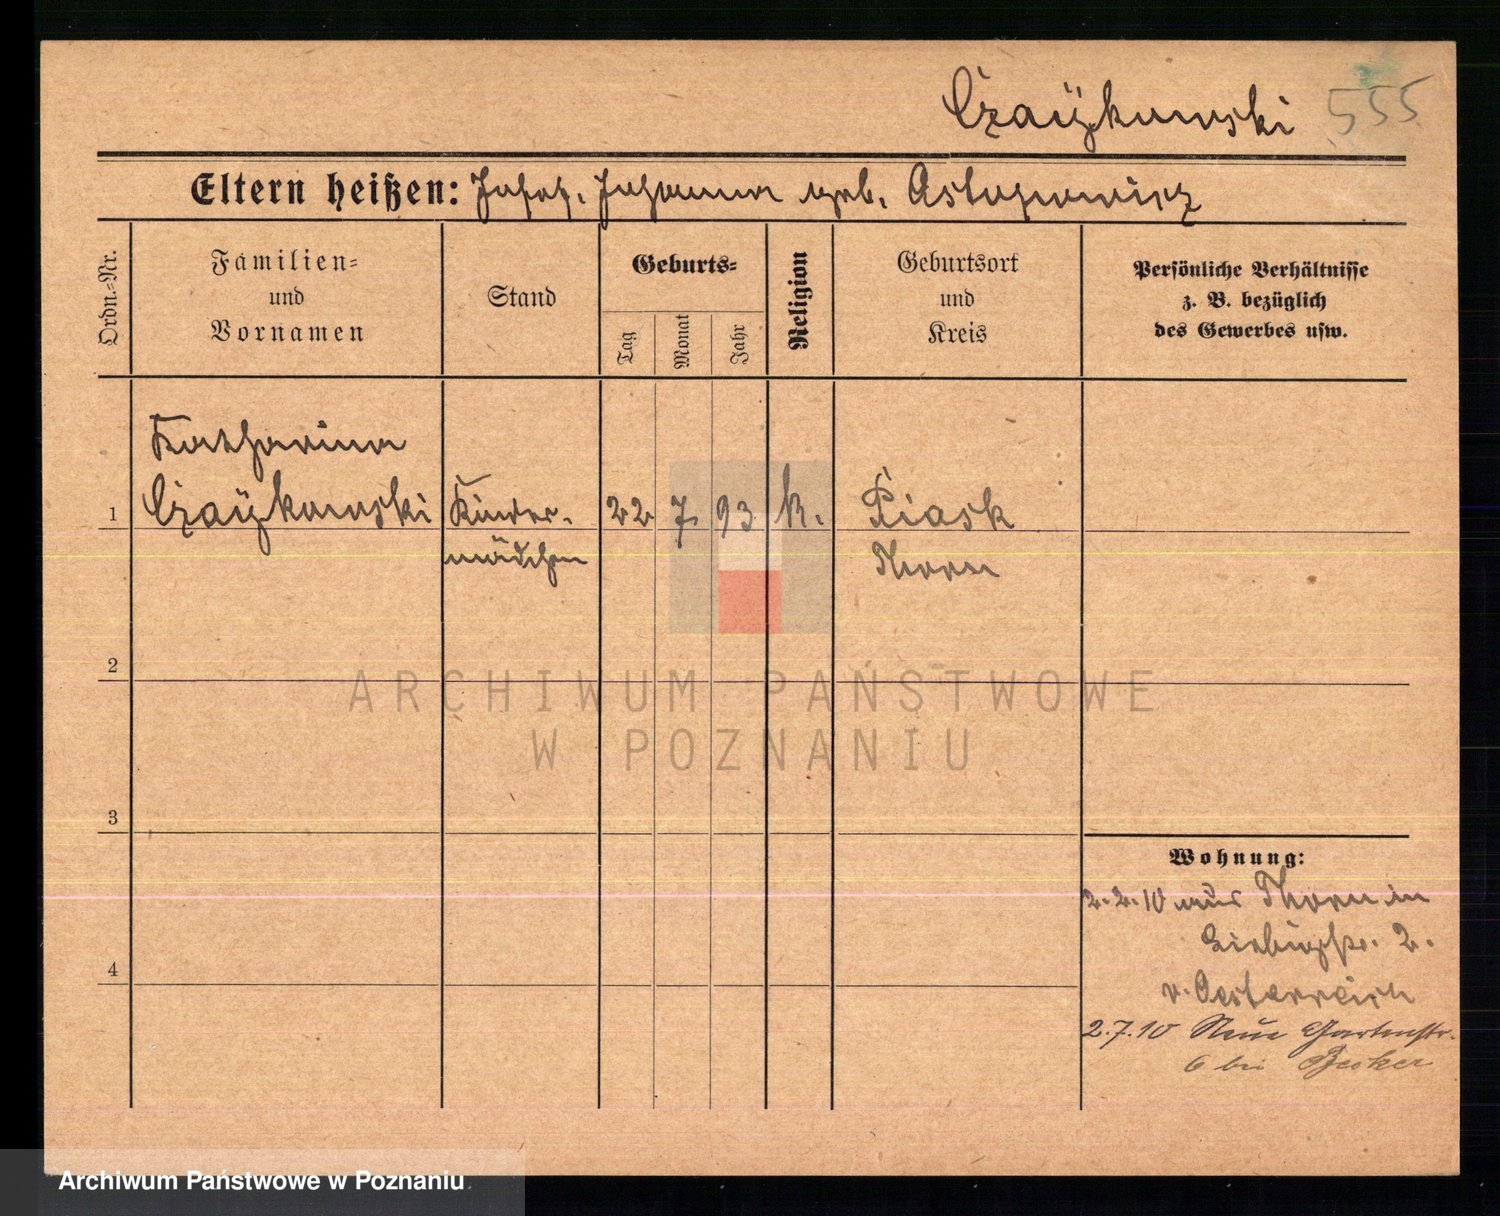 Czaÿkowski 555
Eltern heißen: Josef, Johanna geb.
Ordn.-Nr.
Familien-
und
Vornamen
Stand
Geburts-
Tag
Monat
Jahr
Religion
Geburtsort
und
Kreis
Persönliche Verhältnisse
z. B. bezüglich
des Gewerbes usw.
Katharina
1 Czaÿkowski Kinder- 22 7. 93 k. Piask
mädchen Thorn
2
ARCHIWUM PAŃSTWOWE
W POZNANIU
3
Wohnung:
2.2.10 aus Thorn in
Liebigstr. 2.
4
v. Oesterreich
2.7.10 Neue Gartenstr.
6 bei Becker
Archiwum Państwowe w Poznaniu